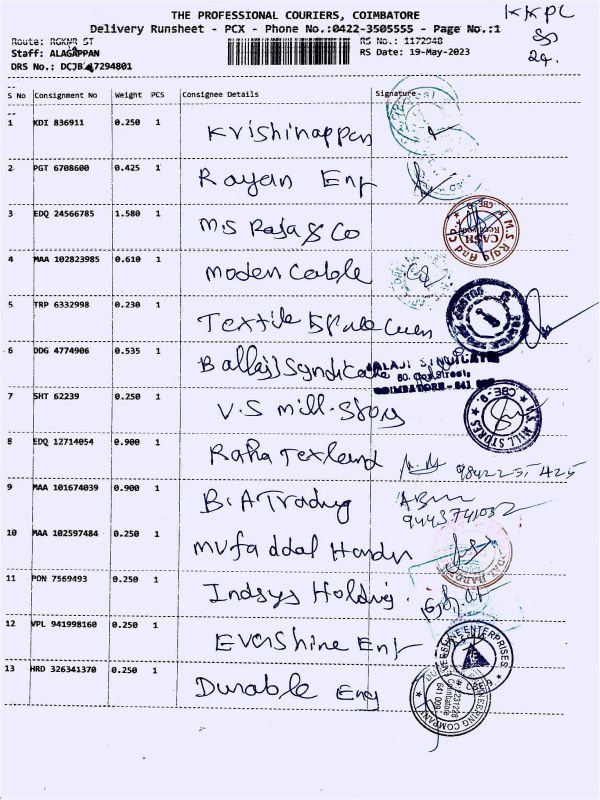 THE PROFESSIONAL COURIERS, COIMBATORE
KKPL
Delivery Runsheet - PCX - Phone No.:0422-3505555 - Page No.:1
Route: RGKNR ST
RS No.: 1172948
Staff: ALAGAPPAN
RS Date: 19-May-2023
24.
DRS No.: DCJB 7294801
S No Consignment No Weight PCS Consignee Details Signature
1 KDI 836911 0.250 1 Krishinappan
2 PGT 6708600 0.425 1 Rayan Ent
3 EDQ 24566785 1.580 1 M.S Raja & Co
M.S Raja and Co CASH Received CBE
4 MAA 102823985 0.610 1 Modern Cable
5 TRP 6332998 0.230 1 Textile
6 DDG 4774906 0.535 1 Ballaji Syndicate
BALAJI SYNDICATE
COIMBATORE - 641
7 SHT 62239 0.250 1 V.S mill-Story
V.S. MILL STORES CBE-9
8 EDQ 12714054 0.900 1 Raha Texland 98422 51425
9 MAA 101674039 0.900 1 B.A Trading
9443741032
10 MAA 102597484 0.250 1 Mufaddal Hardw
11 PON 7569493 0.250 1 Indsys Holding.
12 VPL 941998160 0.250 1 Evershine Ent
EVERSHINE ENTERPRISES CBE-9
13 HRD 326341370 0.250 1 Durable Eng
DURABLE ENGINEERING COMPANY Coimbatore 641 009